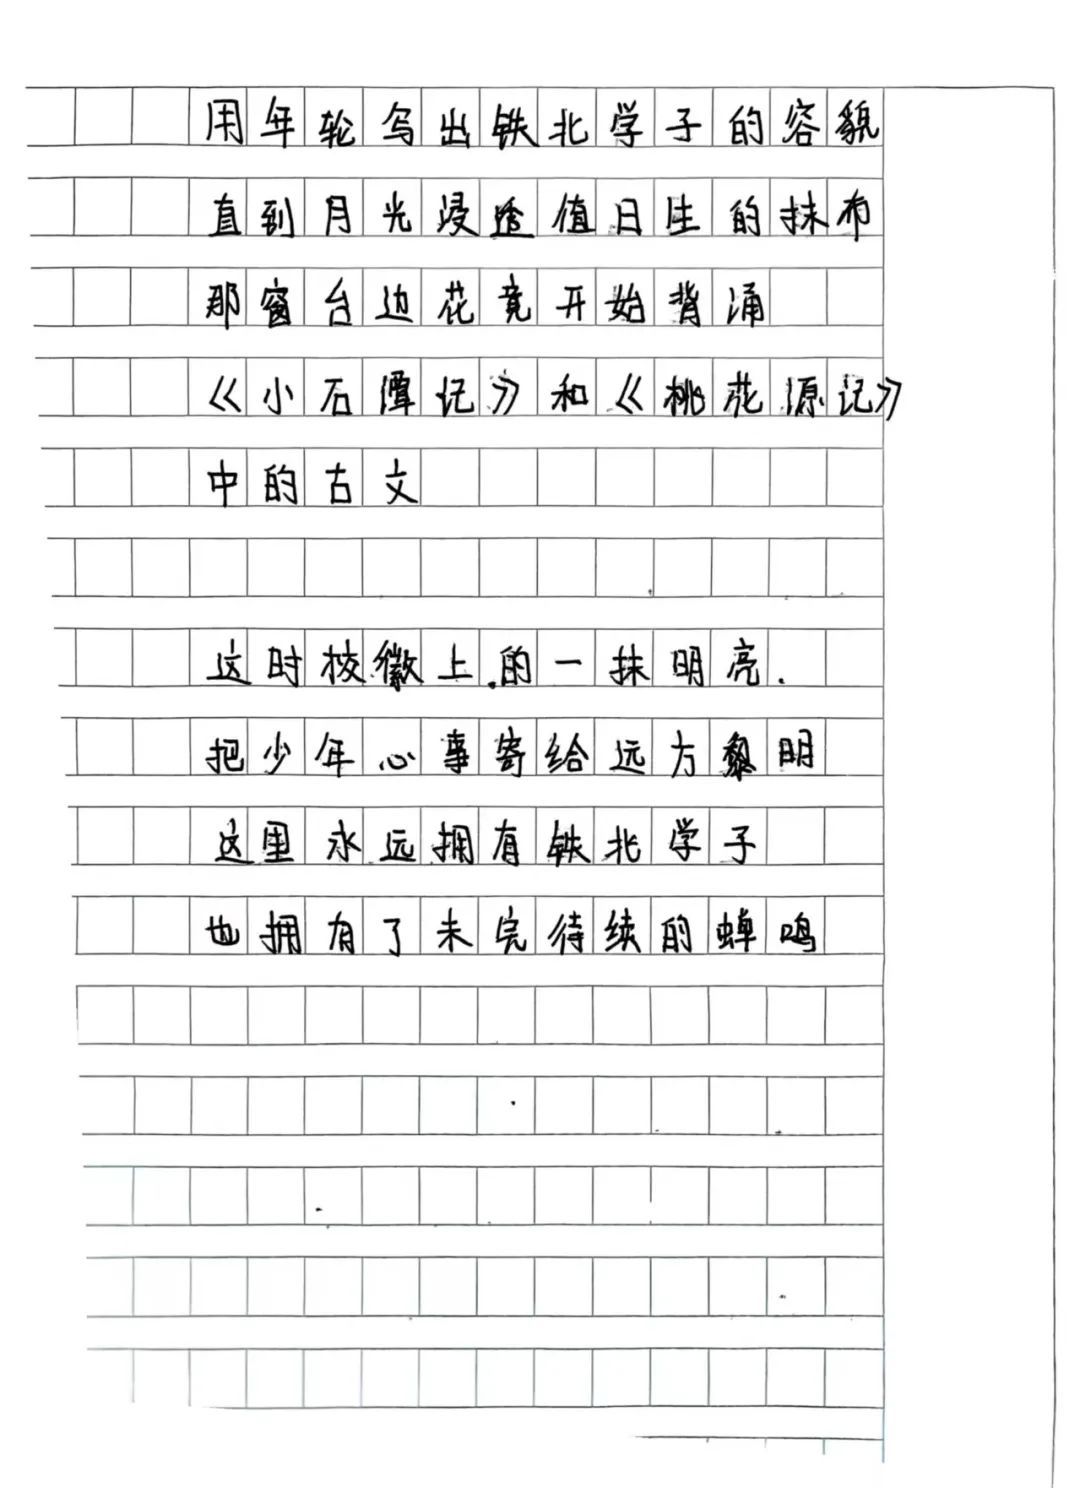 用年轮写出铁北学子的容貌
直到月光浸透值日生的抹布
那窗台边花竟开始背涌
《小石潭记》和《桃花源记》
中的古文
这时校徽上的一抹明亮.
把少年心事寄给远方黎明
这里永远拥有铁北学子
也拥有了未完待续的蝉鸣